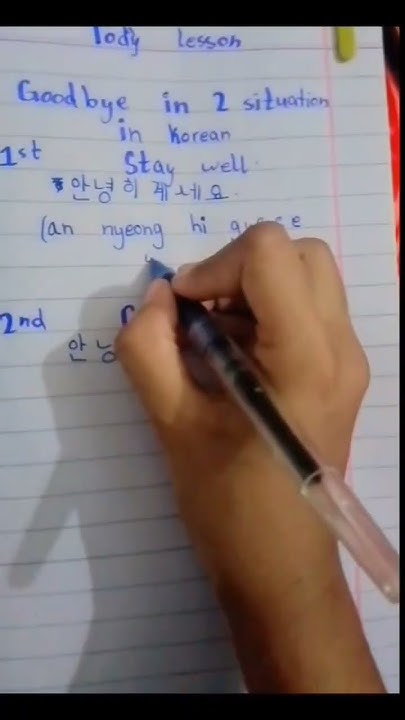 Tody lesson
Good bye in 2 situation
in Korean
1st Stay well.
안녕히 계세요.
(an nyeong hi
2nd
안녕